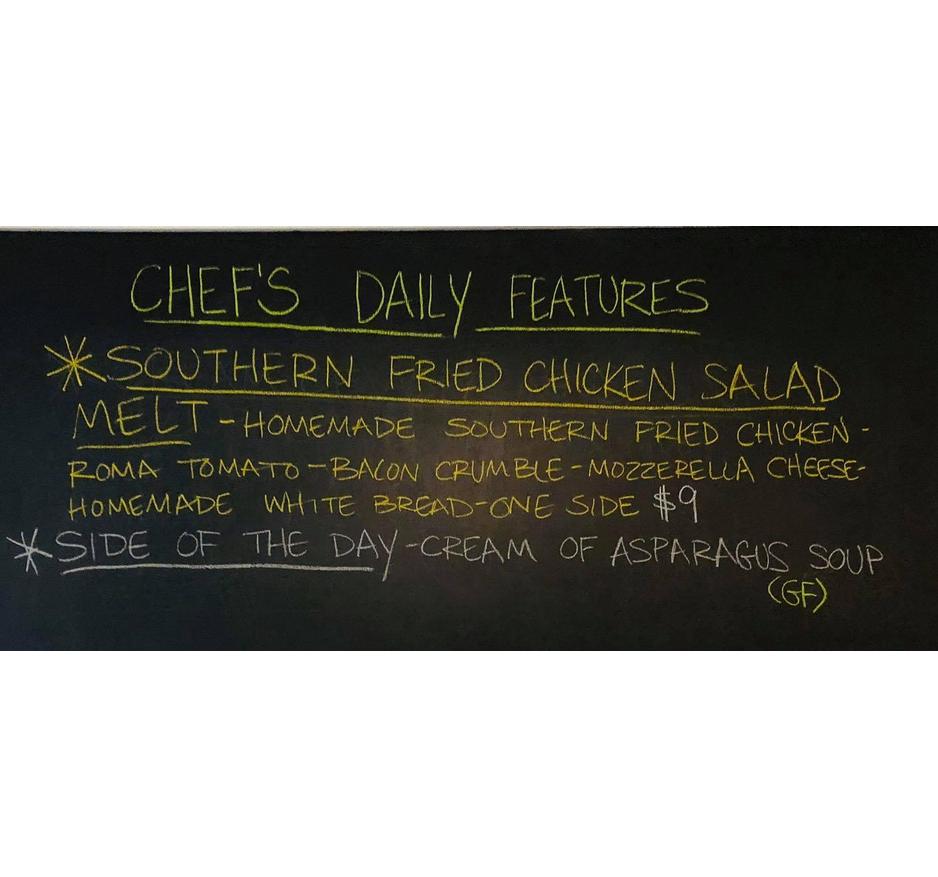 CHEF'S DAILY FEATURES
*SOUTHERN FRIED CHICKEN SALAD
MELT-HOMEMADE SOUTHERN FRIED CHICKEN-
ROMA TOMATO-BACON CRUMBLE-MOZZERELLA CHEESE-
HOMEMADE WHITE BREAD-ONE SIDE $9
*SIDE OF THE DAY-CREAM OF ASPARAGUS SOUP
(GF)